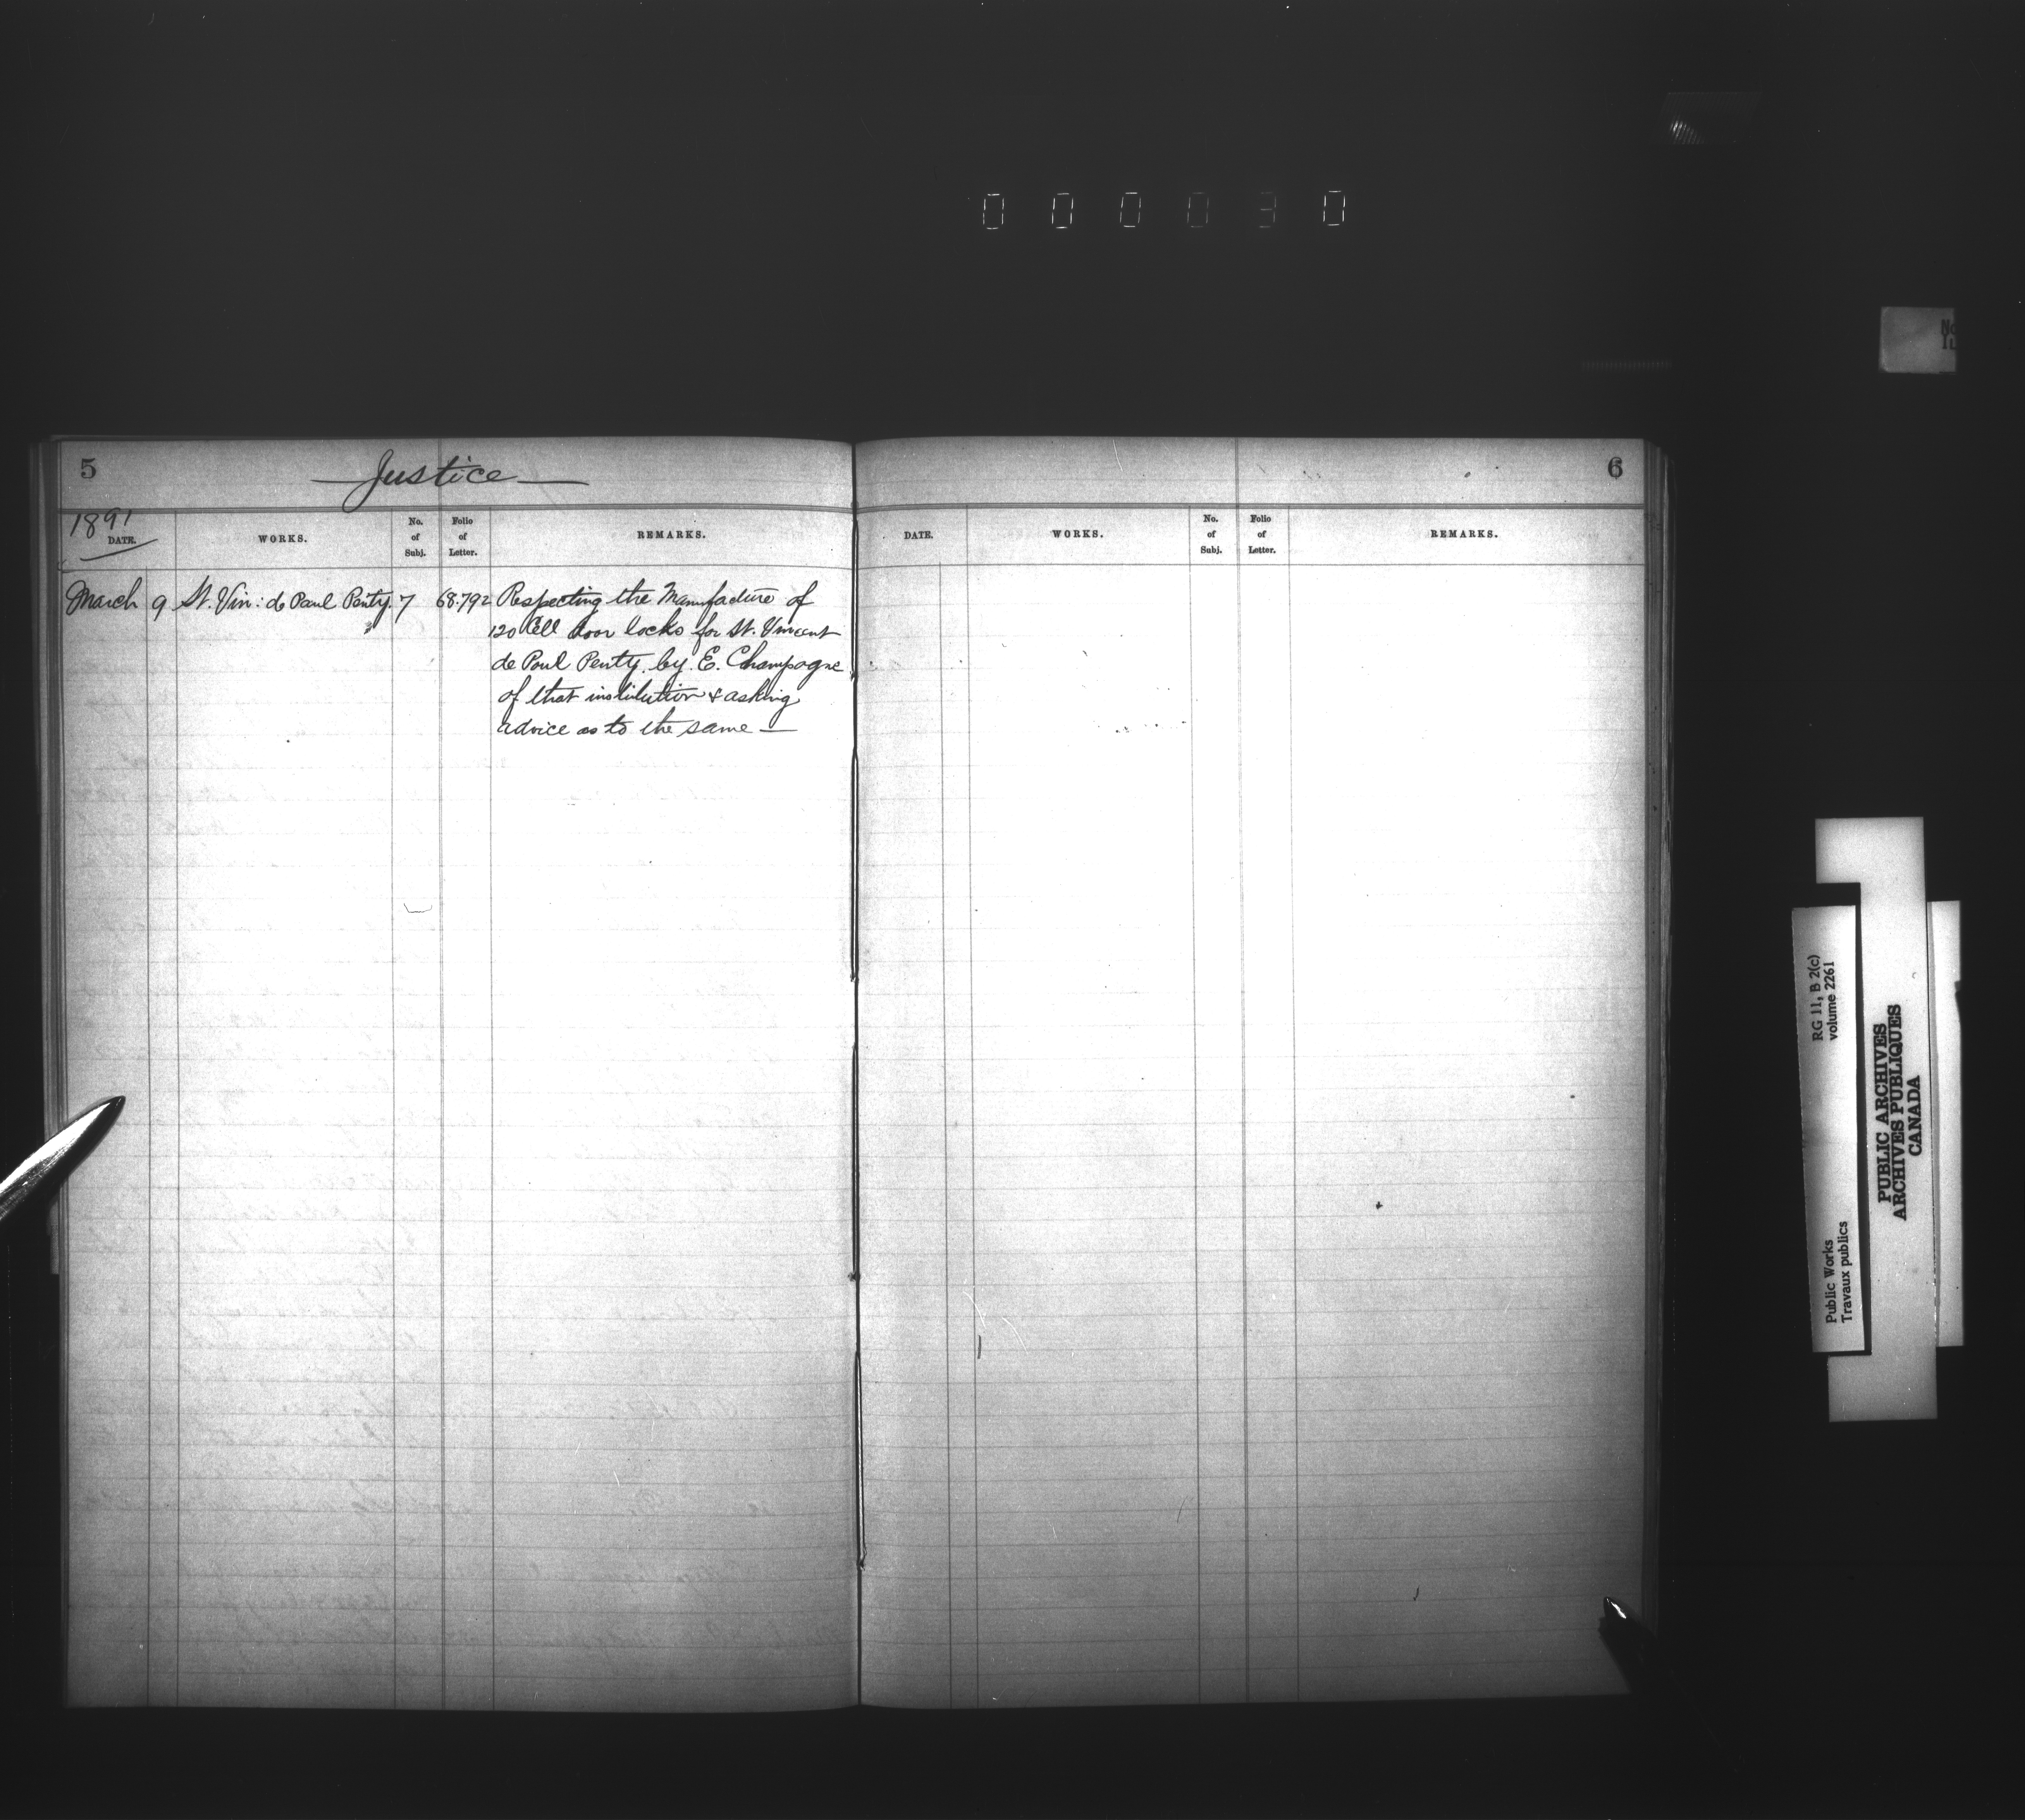 0 0 0 0 3 0
5
Justice
6
1891
DATE. WORKS. No. of Subj. Folio of Letter. REMARKS.
DATE. WORKS. No. of Subj. Folio of Letter. REMARKS.
March 9 St. Vin: de Paul Penty. 7 68.792 Respecting the Manufacture of
120 Cell door locks for St. Vincent
de Paul Penty. by E. Champagne
of that institution & asking
advice as to the same —
RG 11, B 2(c)
volume 2261
Public Works
Travaux publics
PUBLIC ARCHIVES
ARCHIVES PUBLIQUES
CANADA